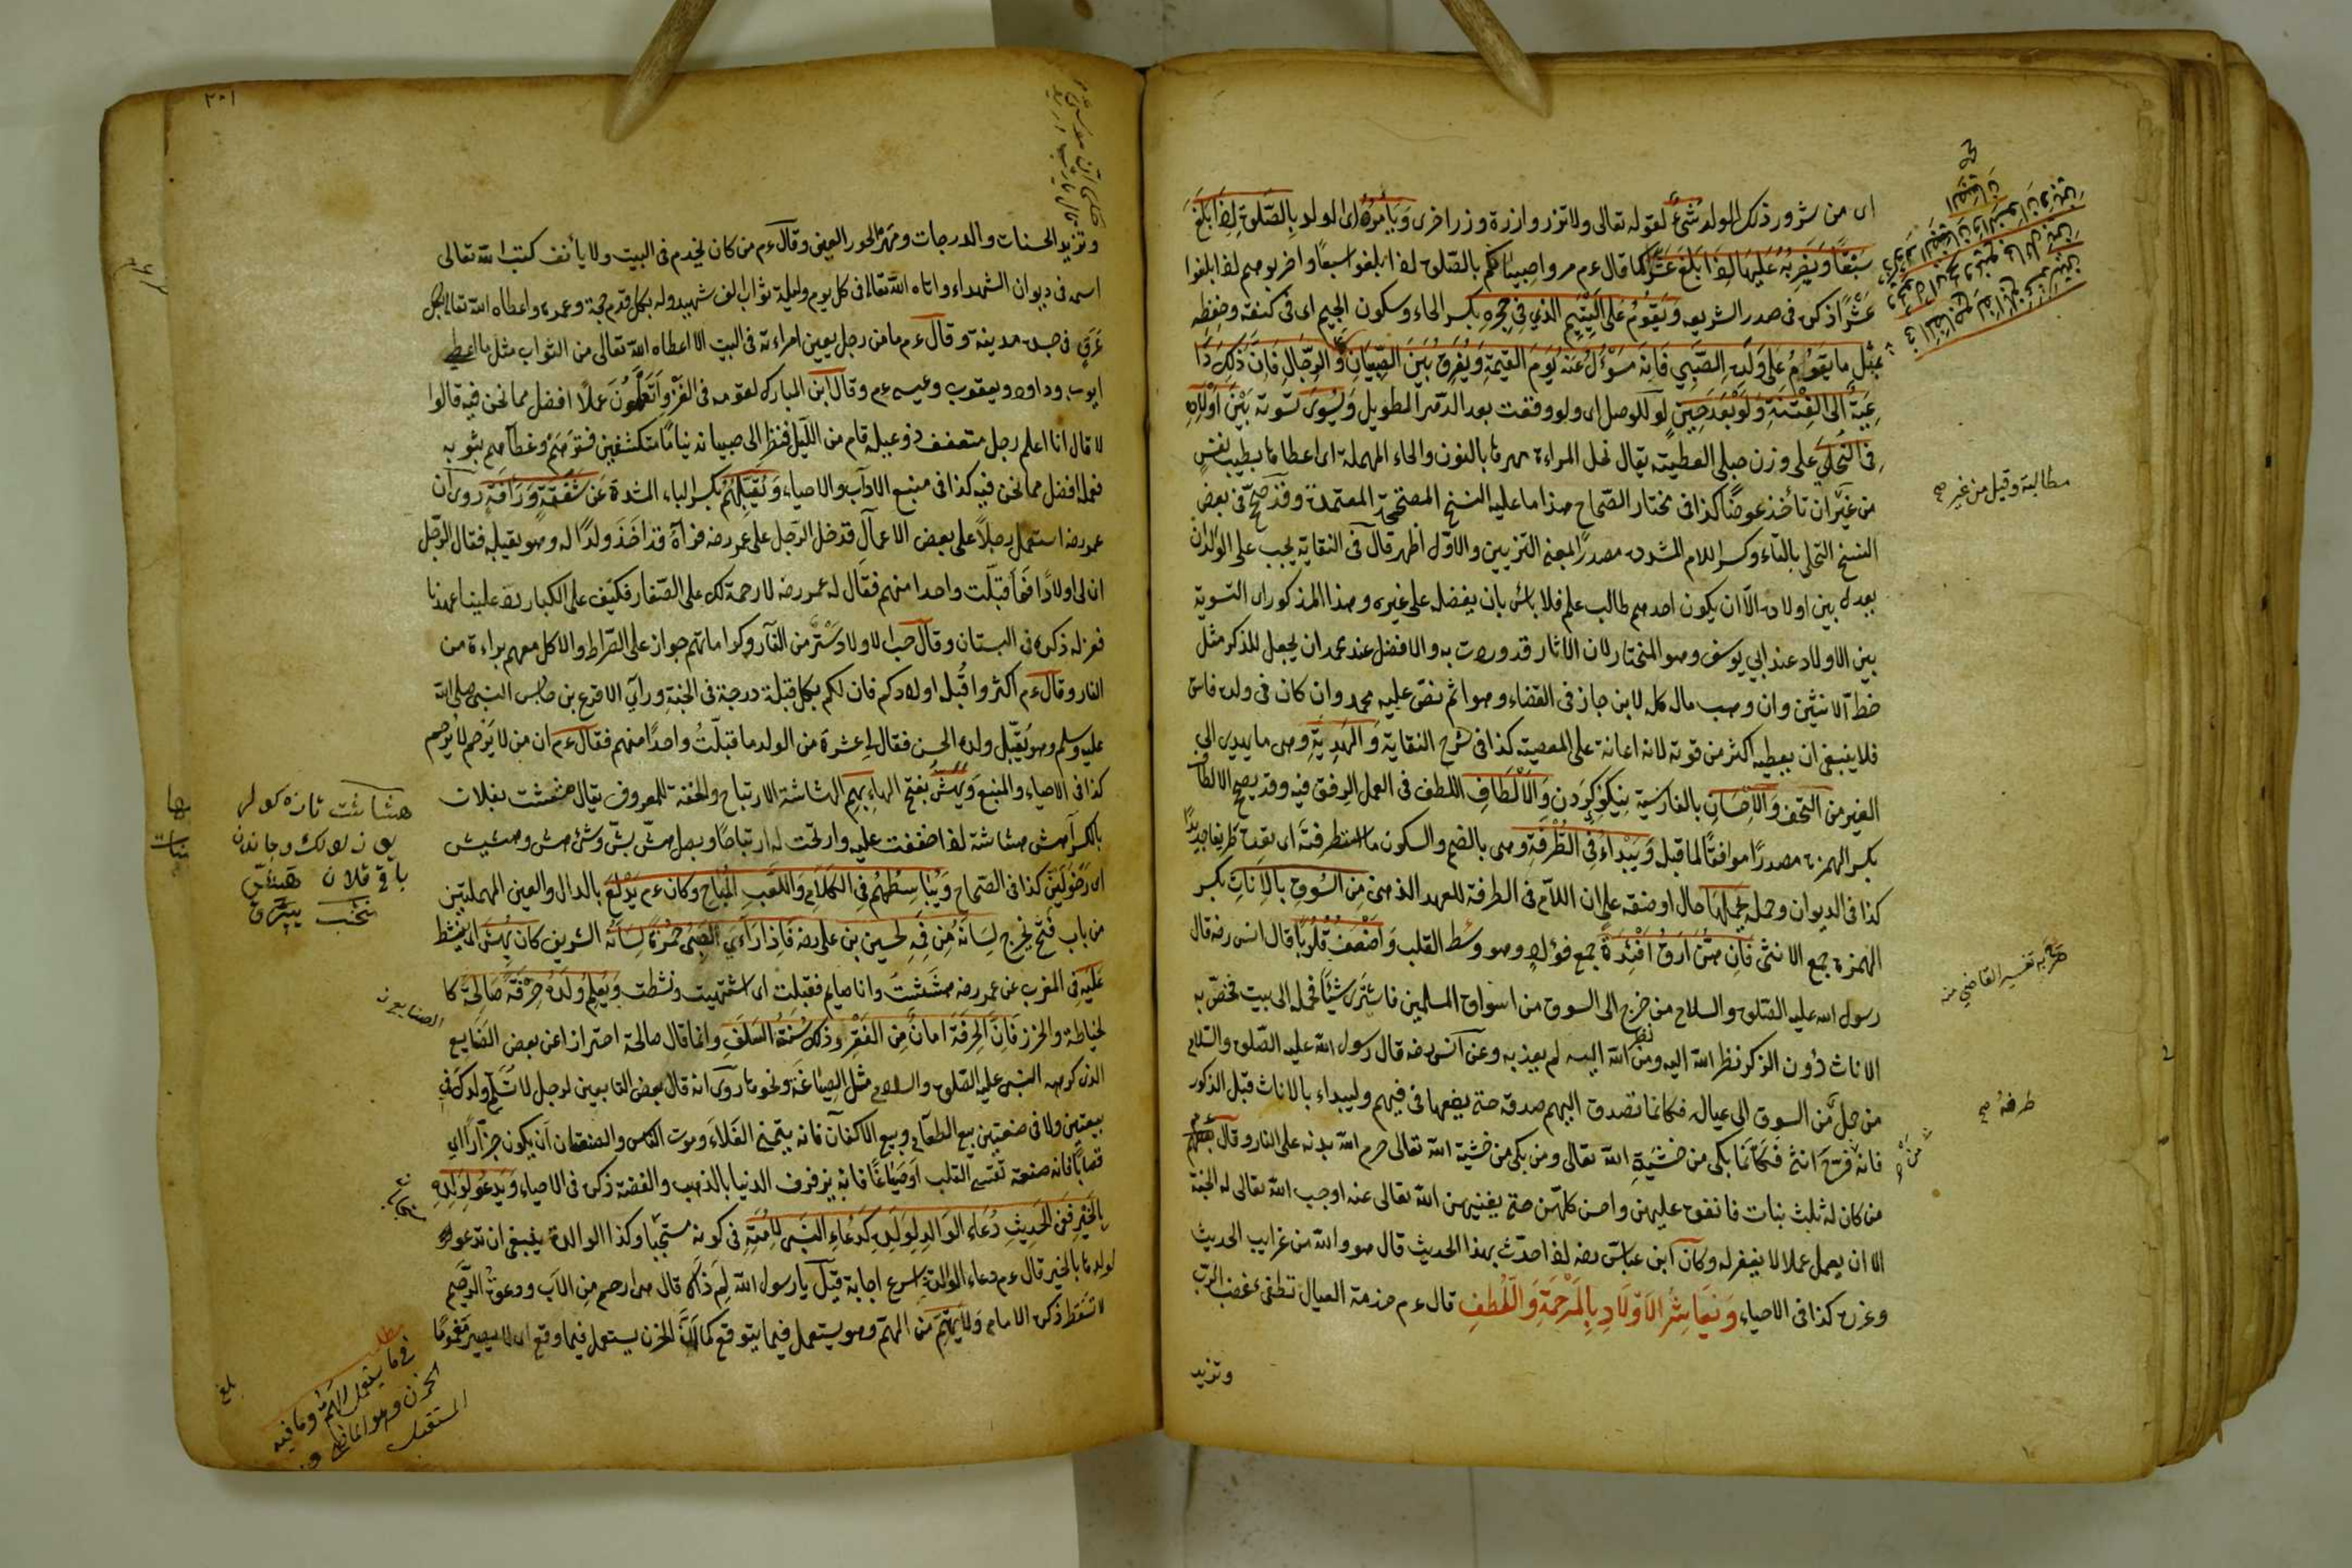 اى من شرور ذلك الولد شئ لقوله تعالى ولا تزر وازرة وزر اخرى وَيَأمُرُهُ اى الولد بِالصَّلٰوةِ اِذَا بَلَغَ
سَبْعًا وَيَضْرِبُهُ عَلَيْهَا اِذَا بَلَغَ عَشْرًا كما قال ءم مروا صبيانكم بالصّلوة اذا بلغوا سبعًا واضربوهم اذا بلغوا
عَشْرًا ذكره فى صدر الشريعه وَيَقُومُ عَلَى الْيَتِيمِ الَّذِي فِي حِجْرِهِ بكسر الحاء وسكون الجيم اى فى كنفه وحفظه
بِمِثْلِ مَا يَقُومُ عَلَى وَلَدِهِ الصَّبِيِّ فَاِنَّهُ مَسْؤُلٌ عَنْهُ يَوْمَ الْقِيٰمَةِ وَيُفَرِّقُ بَيْنَ الصِّبْيَانِ وَالرِّجَالِ فَاِنَّ ذٰلِكَ دَا
عِيَةٌ اِلَى الْفِتْنَةِ وَلَوْ بَعْدَ حِينٍ لو للوصل اى ولو وقعت بعد الدّهر الطويل وَيُسَوِّى تسوية بَيْنَ اَوْلَادِهِ
فِى النُّحْلَى على وزن حبلى العطيّة يقال نحل المراءة مهرها بالنون والحاء المهملة اى اعطاها بطيب نفسٍ
من غير ان تأخذ عوضًا كذا فى مختار الصّحاح هذا ما عليه النسخ المصحّحة المعتمدة وقد صحّ فى بعض
النسخ التحلى بالتاء وكسر اللام المشدده مصدرًا بمعنى التزيين والاوّل اظهر قال فى النقاية يجب على الوالد ان
يعدل بين اولاده الّا ان يكون احدهم طالب علم فلا بائس بان يفضله على غيره وهذا المذكور اى التسوية
بين الاولاد عند ابى يوسف وهو المختار لان الاثار قد وردت به والافضل عند محمد ان يجعل للذكر مثل
حظّ الانثيين وان وهب ماله كله لابن جاز فى القضاء وهو اثم نصّ عليه محمد وان كان فى ولده فاسق
فلا ينبغى ان يعطيه اكثر من قوته لانه اعانة على المعصية كذا فى شرح النقاية وَالْهَدِيَّةِ وهى ما يهدى الى
الغير من التحف وَالْاِحْسَانِ بالفارسية نِيكُو كَردَن وَالْاَلْطَافِ اللطف فى العمل الرفق فيه وقد يصح الالطاف
بكسر الهمزة مصدرًا موافقًا لما قبله وَيَبْدَاءُ فِى الطُّرْفَةِ وهى بالضم والسكون ما استطرفته اى تعدّه طريفا جديدًا
كذا فى الديوان وحمله يَحْمِلُهَا حال او صفة على ان اللام فى الطرفة للعهد الذهنى مِنَ السُّوقِ بِالْاِنَاثِ بكسر
الهمزة جمع الانثى فَاِنَّهُنَّ اَرَقُّ اَفْئِدَةً جمع فؤاد وهو وسط القلب وَاَضْعَفُ قُلُوبًا قال انس رضه قال
رسول الله عليه الصّلوة والسلام من خرج الى السوق من اسواق المسلمين فاشترى شيئًا فحمله الى بيت فخصّ به
الاناث دون الذكر نظر الله اليه ومن نظر الله اليه لم يعذبه وعن انس رضه قال رسول الله عليه الصّلوة والسّلام
من حمل من السوق الى عياله فكانما تصدق اليهم صدقة حتى يضعها فى فيهم وليبداء بالاناث قبل الذكور
فانه من فرّح انثى فَكَاَنَّمَا بكى من خشية الله تعالى ومن بكى من خشية الله تعالى حرم الله بدنه على النار وقال ءم
من كان له ثلث بنات فانفق عليهن واحسن كلهن حتى يغنيهن الله تعالى عنه اوجب الله تعالى له الجنة
الا ان يعمل عملا لا يغفر له وكان ابن عباس رضه اذا حدّث بهذا الحديث قال هو والله من غرايب الحديث
وغرره كذا فى الاحياء وَيُعَاشِرُ الْاَوْلَادِ بِالْمَرْحَمَةِ وَاللُّطْفِ قال ءم خدمة العيال تطفئ غضب الرّب
وتزيد
مطالبة وقيل من غير صح
صرّح به تفسير القاضى منه
طرفة صح
من صح
٢٠١
وتزيد الحسنات والدرجات ومهر الحور العين وقال ءم من كان يخدم فى البيت ولا يأنف كتب الله تعالى
اسمه فى ديوان الشهداء واتاه الله تعالى فى كل يوم وليلة ثواب الف شهيد وله بكل قدم حجة وعمرة واعطاه الله تعالى بكل
عرق فى جسده مدينة وقال ءم ما من رجل يعين امراءته فى البيت الا اعطاه الله تعالى من الثواب مثل ما اعطى
ايوب وداود ويعقوب وعيسى ءم وقال ابن المبارك لقومه فى الغزو اَتَعْلَمُونَ عملًا افضل مما نحن فيه قالوا
لا قال انا اعلم رجل متعفف ذو عيلة قام من اللّيل فنظر الى صبيانه نيامًا متكشفين فسترهم وغطّاهم بثوبه
فعمله افضل مما نحن فيه كذا فى منبع الاداب والاحياء وَيُقَبِّلُهُمْ بكسر الباء المشددة عَنْ شَفَقَةٍ وَرَأفَةٍ روى ان
عمر رضه استعمل رجلًا على بعض الاعمال فدخل الرّجل على عمر رضه فرآه قد اَخَذَ ولدًا له وهو يقبله فقال الرّجل
ان لى اولادًا فَمَا قبّلت واحدا منهم فقال له عمر رضه لا رحمة لك على الصّغار فكيف على الكبار ردّ علينا عهدنا
فعزله ذكره فى البستان وقال حبّ الاولاد سَتْرٌ من النّار وكراماتهم جواز على الصّراط والاكل معهم براءة من
النار وقال ءم اكثروا قُبَلَ اولادكم فان لكم بكل قبلة درجة فى الجنة ورآى الاقرع بن حابس النبى صلى الله
عليه وسلم وهو يُقَبِّل ولده الحسن فقال لى عشرة من الولد ما قبّلتُ واحدًا منهم فقال ءم ان من لا يَرْحَم لا يُرْحَم
كذا فى الاحياء والمنبع وَيَهَشُّ بفتح الهاء بِهِم الهشاشة الارتياح والخفة للمعروف يقال هششت بفلان
بالكسر اهش هشاشة اذا خففت عليه وارتحت له ارتياحًا ورجل هشّ بشّ وشئ هش وهشيش
اى رَخْوٌ لَيِّنٌ كذا فى الصّحاح وَيُبَاسِطُهُمْ فِى الْكَلَامِ وَاللَّعْبِ الْمُبَاحِ وكان ءم يَدْلَعُ بالدال والعين المهملتين
من باب فتح يخرج لِسَانَهُ مِنْ فِيهِ لحسين بن على رضه فَاِذَا رَاٰى الصَّبِىُّ حُمْرَةَ لِسَانِهِ الشريف كان يَهُشُّ اى ينشط
عَلَيْهِ فى المغرب عن عمر رضه هَشَشْتُ وانا صايم فقبلت اى اشتهيت ونشطت وَيُعَلِّمُ وَلَدَهُ حِرْفَةً صَالِحَةً كا
لخياطة والخرز فَاِنَّ الْحِرْفَةَ اَمَانٌ مِنَ الْفَقْرِ وَذٰلِكَ سُنَّةُ السَّلَفِ وانما قال صالحة احترازا عن بعض الصَّنايع
الذى كرهه النبى عليه الصّلوة والسلام مثل الصِّيَاغَة ونحوها روى انه قال بعض التابعين لرجل لا تُسَلِّمْ ولدك فى
بيعتين ولا فى صنعتين بيع الطعام وبيع الاكفان فانه يتمنى الغَلاءَ وموت الناس والصنعتان اَن يكون جزّارًا اى
قصابًا فانه صنعة تقسى القلب اَوْ صَيَّاغًا فانه يزخرف الدنيا بالذهب والفضة ذكره فى الاحياء وَيَدْعُو لِوَلَدِهِ
بِالْخَيْرِ فَفِى الْحَدِيثِ دُعَاءُ الْوَالِدِ لِوَلَدِهِ كَدُعَاءِ النَّبِىِّ لِاُمَّتِهِ فى كونه مستجبا وكذا الوالدة ينبغى ان تدعوا
لولدها بالخير قال ءم دعاء الوالدة اسرع اجابة قيل يا رسول الله لِمَ ذاك قال هى ارحم مِن الاب ودعوة الرّحيم
لا تسقط ذكره الامام وَلَا يَهْتَمُّ من الهمّ وهو يستعمل فيما يتوقع كما اَنَّ الحزن يستعمل فيما وقع اى لا يصير مَغمومًا
هشاشت تازه
الصنايع
مطلب
فى ما يستعمل الهمّ وما فيه
الحزن وهو الماضى و
المستقبل
بلغ